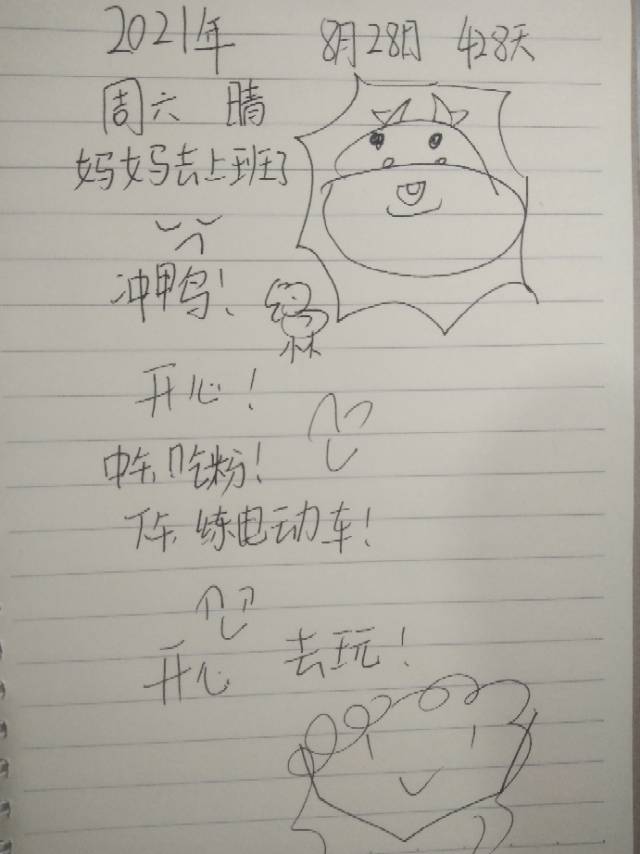 2021年 8月28日 428天
周六 晴
妈妈去上班了
冲鸭!
开心!
中午吃粉!
下午练电动车!
开心 去玩!